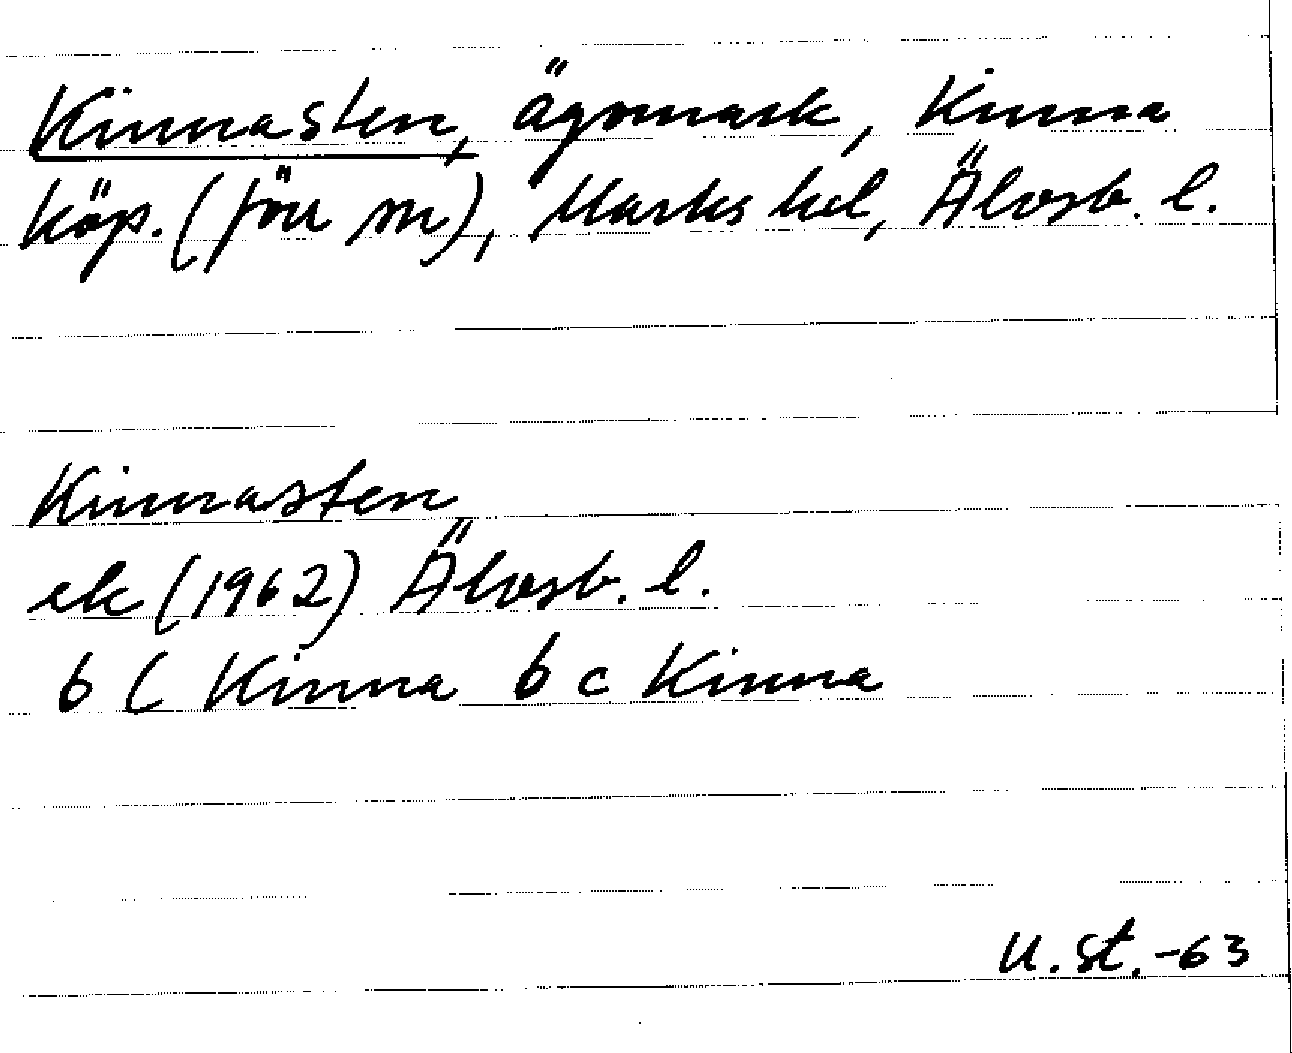 Kinnasten, ägomark, Kinna
köp. (förr sn), Marks hd, Älvsb. l.
Kinnasten
ek (1962) Älvsb. l.
6 C Kinna 6 c Kinna
U. St. -63